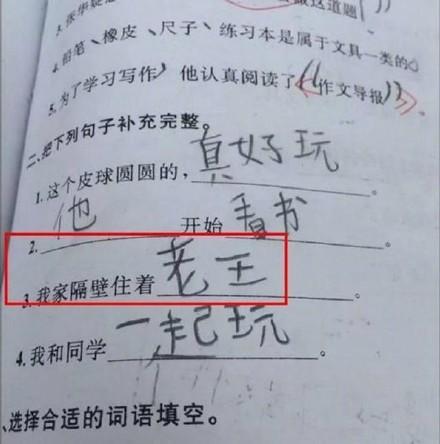 3.
做这道题
4.铅笔、橡皮、尺子、练习本是属于文具一类的。
5.为了学习写作,他认真阅读了《作文导报》。
二、把下列句子补充完整。
1.这个皮球圆圆的,真好玩。
2.他开始看书。
3.我家隔壁住着老王。
4.我和同学一起玩。
、选择合适的词语填空。